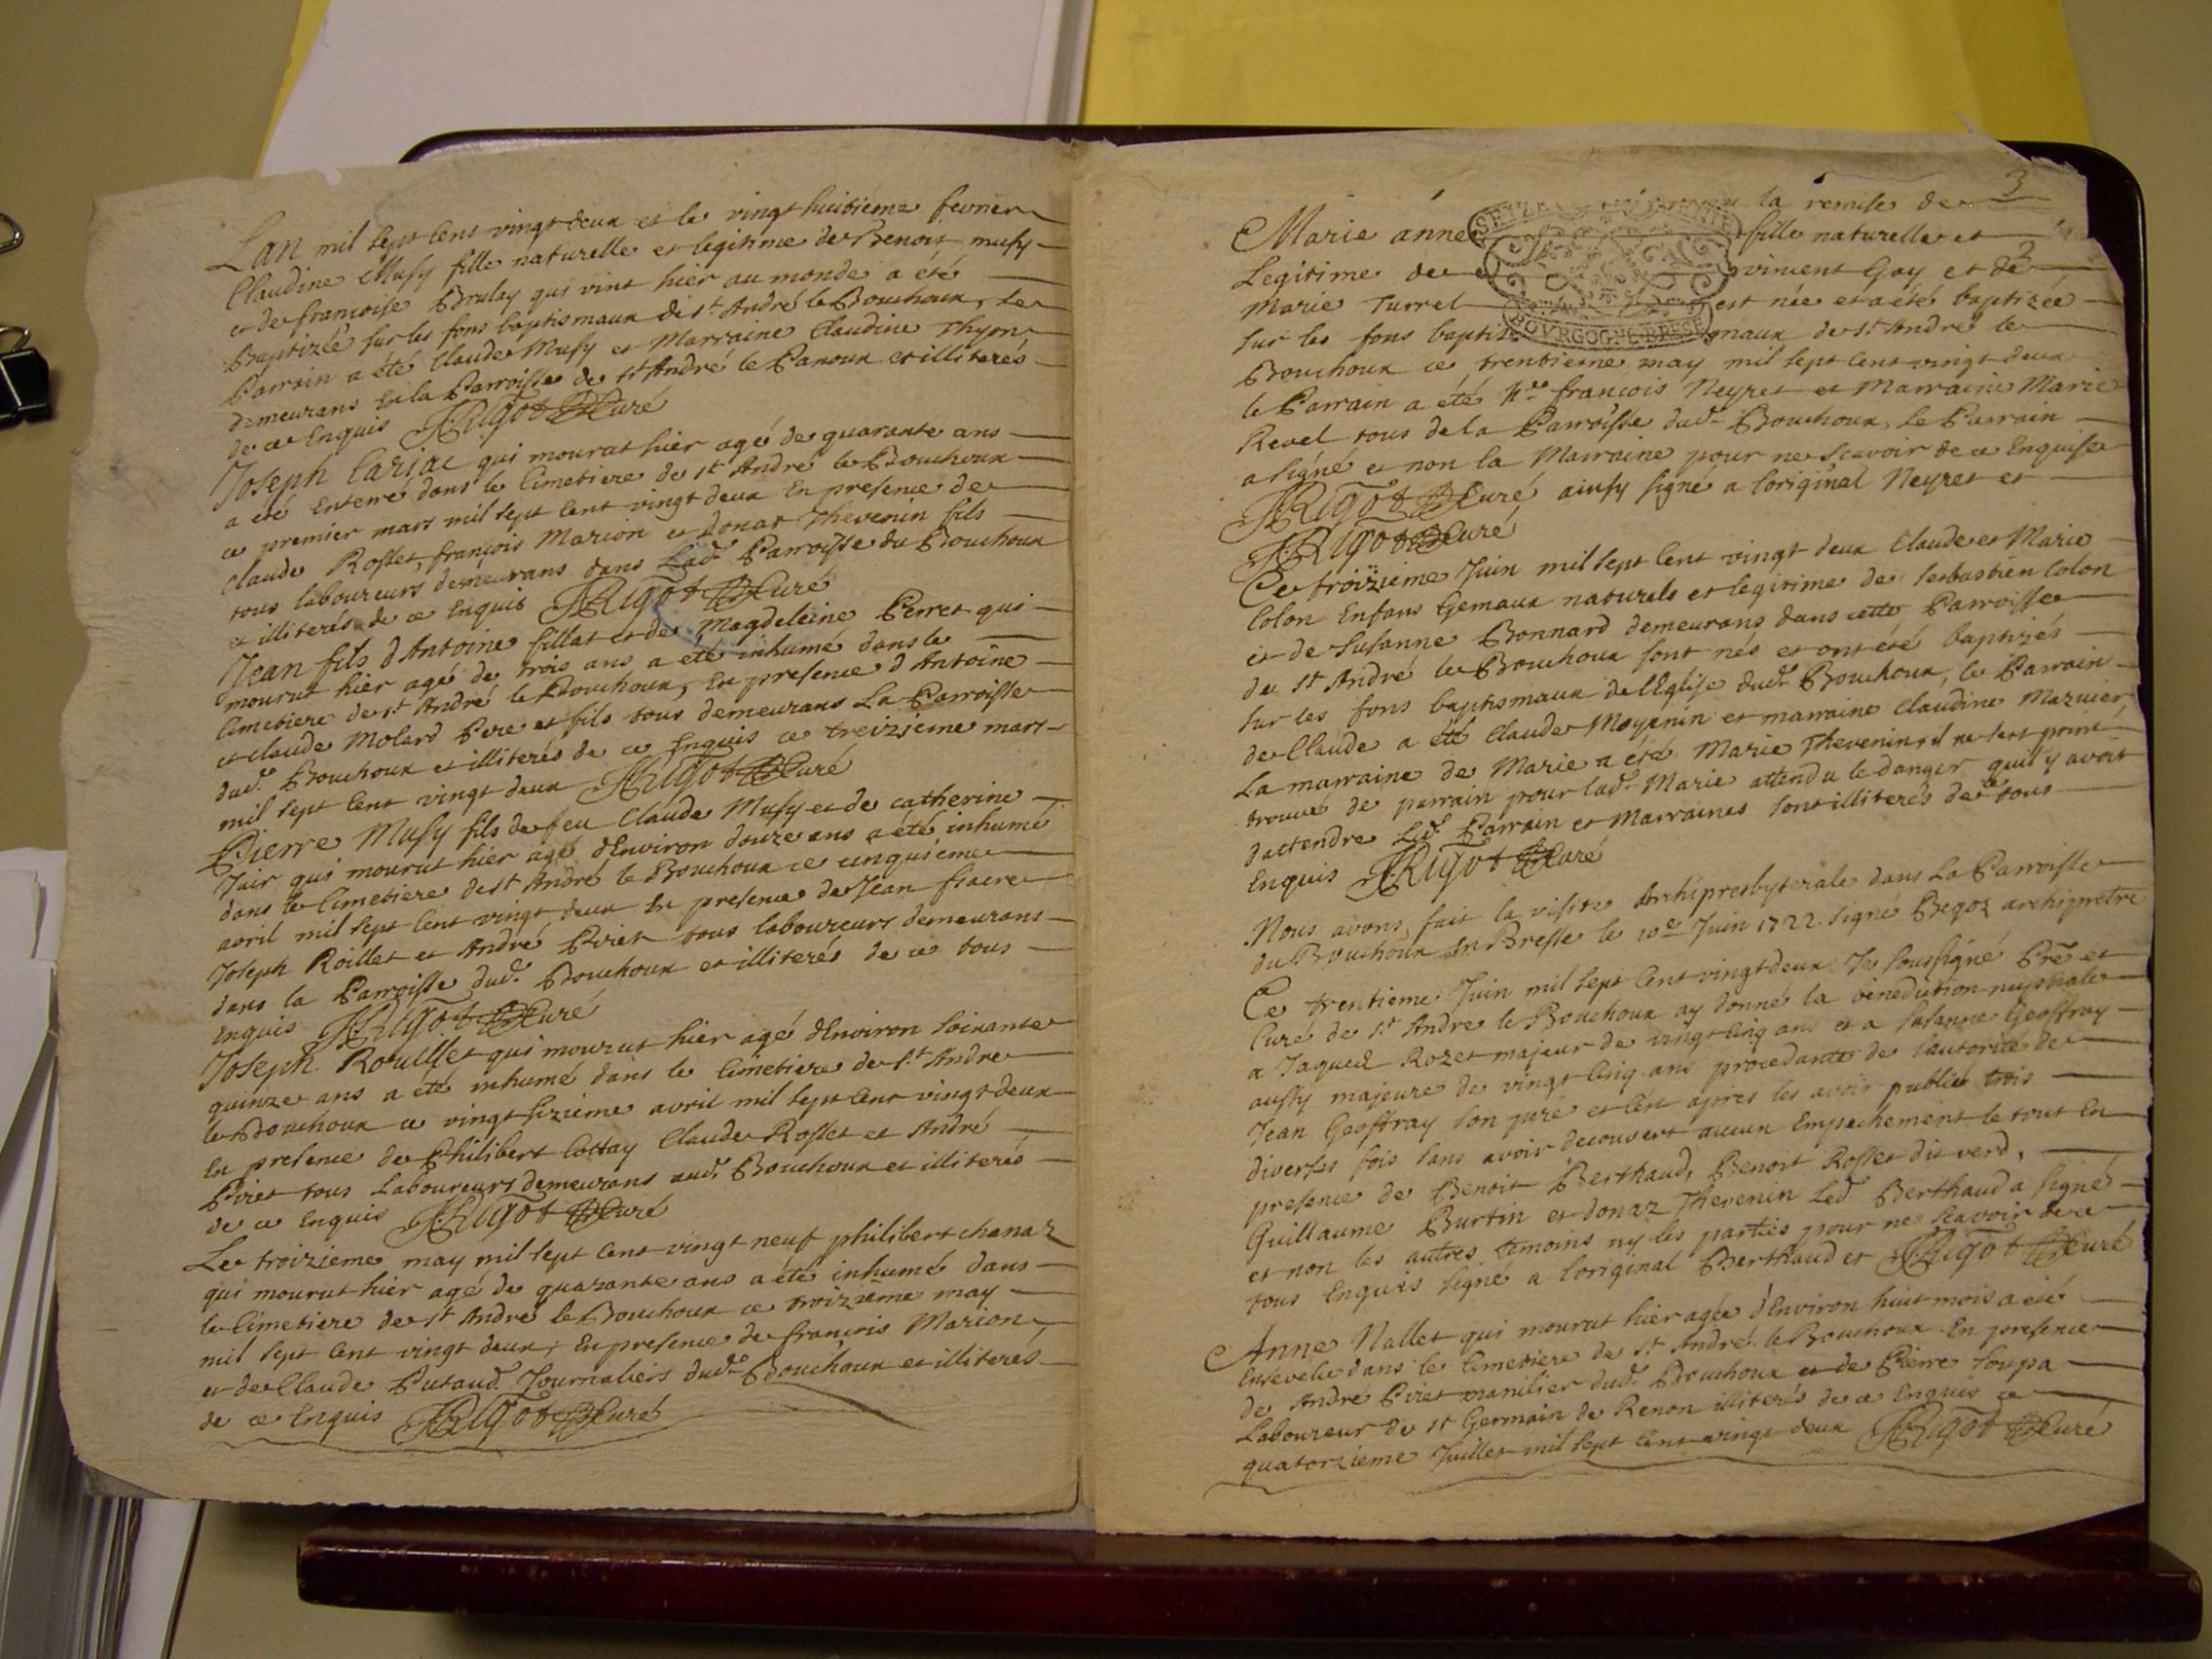 Lan mil sept cens vingt deux et le vingt huitiéme fevrier
Claudine Musy fille naturelle et legitime de Benoit musy
et de françoise Brulay qui vint hier au monde a été
Baptizée sur les fons baptismaux de st. André le Bouchoux, Le
Parrain a été Claude Musy et Marraine Claudine Thyon
demeurans En la Parroisse de st André le Panoux et illiterés
de ce Enquis JRigot Curé
Joseph Cariac qui mourut hier agé de quarante ans
a été Enterré dans le Cimetiere de st André le Bouchoux
ce premier mars mil sept Cent vingt deux En presence de
Claude Rosset, françois Marion et donat Thevenin fils
tous laboureurs demeurans dans Lad. Parroisse du Bouchoux
et illiterés de ce Enquis JRigot Curé
Jean fils d'Antoine fillat et de Magdeleine Perret qui
mourut hier agé de trois ans a été inhumé dans le
Cimetiere de st. André le Bouchoux, En presence d'Antoine
et Claude Molard Pere et fils tous demeurans La Parroisse
dud. Bouchoux et illiterés de ce Enquis ce treizieme mars
mil sept Cent vingt deux JRigot Curé
Pierre Musy fils de feu Claude Musy et de catherine
Jair qui mourut hier agé d'Environ douze ans a été inhumé
dans le Cimetiere de st André le Bouchoux ce cinquiéme
avril mil sept Cent vingt deux En presence de Jean fiacre
Joseph Roillet et André Piret tous laboureurs demeurans
dans la Parroisse dud. Bouchoux et illiterés de ce tous
enquis JRigot Curé
Joseph Rouillet qui mourut hier agé d'Environ soixante
quinze ans a été inhumé dans le Cimetiere de st. André
le Bouchoux ce vingt sizieme avril mil sept Cent vingt deux
En presence de Philibert Cottay Claude Rosset et André
Piret tous Laboureurs demeurans aud. Bouchoux et illiterés
de ce Enquis JRigot Curé
Le troizieme may mil sept Cent vingt neuf philibert chanaz
qui mourut hier agé de quarante ans a été inhumé dans
le Cimetiere de st André le Bouchoux ce troizieme may
mil sept Cent vingt deux, En presence de françois Marion
et de Claude Putaud. Journaliers dud. Bouchoux et illiterés
de ce Enquis JRigot Curé
3
la remise de
Marie anne fille naturelle et
Legitime de vincent Gay et de
Marie Turrel est née et a été baptizée
sur les fons baptismaux de st André le
POVRGOGNE BRESSE
Bouchoux ce trentieme may mil sept Cent vingt deux
le Parrain a été françois Neyret et Marraine Marie
Revel tous de la Parroisse dud. Bouchoux, Le Parrain
a signé et non la Marraine pour ne scavoir de ce Enquise
JRigot Curé ainsy signé a l'original Neyret et
JRigot Curé
Ce troizieme Juin mil sept Cent vingt deux Claude et Marie
Colon Enfans Gemaux naturels et legitime de Sebastien Colon
et de Susanne Bonnard demeurans dans cette Parroisse
de st André le Bouchoux sont nés et ont été baptizés
sur les fons baptismaux de l'Eglise dud. Bouchoux, le Parrain
de Claude a été Claude Moyenin et marraine Claudine Mazuier,
La marraine de Marie a eté Marie Thevenin, il ne sest point
trouvé de parrain pour lad. Marie attendu le danger quil y avoit
dattendre Led. Parrain et Marraines sont illiterés de ce tous
Enquis JRigot Curé
Nous avons fait la visite Archipresbyterale dans La Parroisse
du Bouchoux en Bresse le 10e Juin 1722. signé Begoz archipretre
Ce trentieme Juin mil sept Cent vingt deux Je soussigné Pre et
Curé de st. André le Bouchoux ay donné la benediction nuptiale
a Jaques Rozet majeur de vingt Cinq ans et a Susanne Geoffray
aussy majeure de vingt Cinq ans procedante de l'autorité de
Jean Geoffray son pere et Cest apres les avoir publiés trois
diverses fois sans avoir decouvert aucun Empechement le tout En
presence de Benoit Berthaud, Benoit Rosset dit verd,
Guillaume Burtin et donaz Thevenin Led. Berthaud a signé
et non les autres temoins ny les parties pour ne scavoir de ce
tous Enquis signé a l'original Berthaud et JRigot Curé
Anne Nallet qui mourut hier agée d'Environ huit mois a été
Ensevelie dans le Cimetiere de st. André le Bouchoux En presence
de André Piret manilier dud. Bouchoux et de Pierre Soupa
Laboureur de st Germain de Renon illiterés de ce Enquis ce
quatorzieme Juillet mil sept Cent vingt deux JRigot Curé